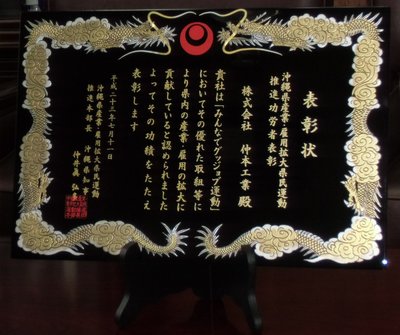 表彰状
沖縄県産業・雇用拡大県民運動
推進功労者表彰
株式会社 仲本工業 殿
貴社は「みんなでグッジョブ運動」
においてその優れた取組等に
より県内の産業・雇用の拡大に
貢献していると認められました
よってその功績をたたえ
表彰します
平成二十三年 月十一日
沖縄県産業・雇用拡大県民運動
推進本部長 沖縄県知事
仲井眞 弘